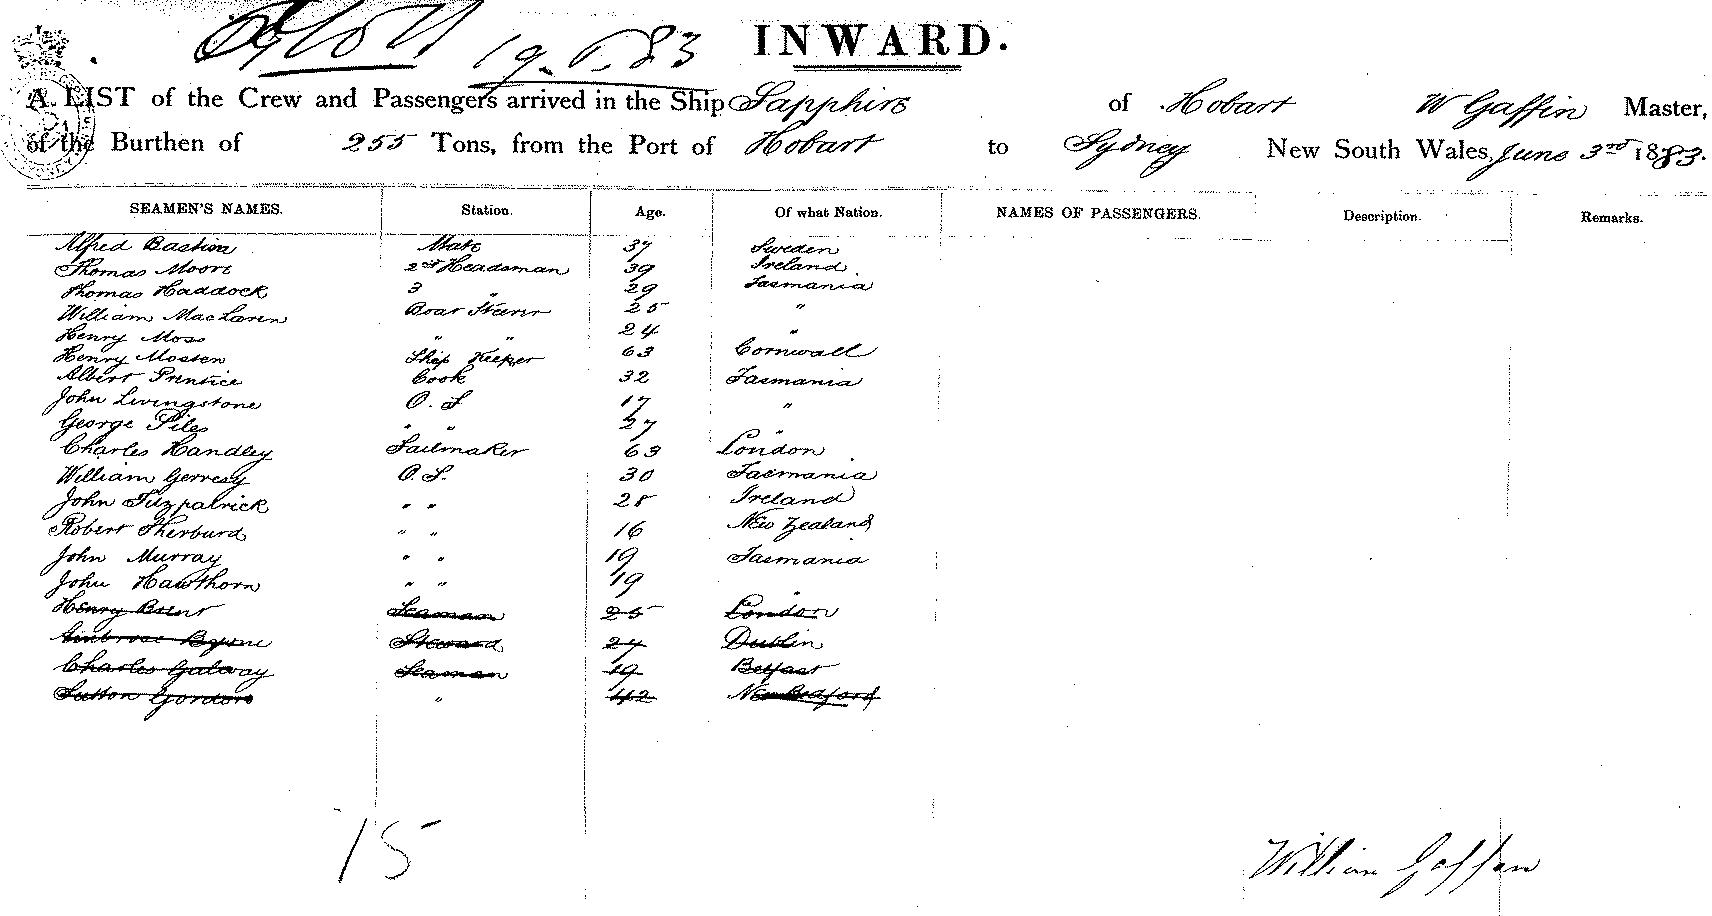 19.6.83 INWARD.
A LIST of the Crew and Passengers arrived in the Ship Sapphire of Hobart W Gaffin Master,
of the Burthen of 255 Tons, from the Port of Hobart to Sydney New South Wales, June 3rd 1883.
SEAMEN'S NAMES. Station. Age. Of what Nation. NAMES OF PASSENGERS. Description. Remarks.
Alfred Bastion Mate 37 Sweden
Thomas Moore 2nd Headsman 39 Ireland
Thomas Haddock 3 " 29 Tasmania
William MacLaren Boat Steerer 25 "
Henry Moss " " 24 "
Henry Mosten Ship Keeper 63 Cornwall
Albert Prentice Cook 32 Tasmania
John Livingstone O. S 17 "
George Piles " " 27 "
Charles Handley Sailmaker 63 London
William Gervesy O. S. 30 Tasmania
John Fitzpatrick " " 28 Ireland
Robert Therburd " " 16 New Zealand
John Murray " " 19 Tasmania
John Hawthorn " " 19 "
Henry Brent Seaman 25 London
Ambrose Byrne Steward 27 Dublin
Charles Galway Seaman 19 Belfast
Sutton Gordon " 42 New Bedford
15
William Gaffin